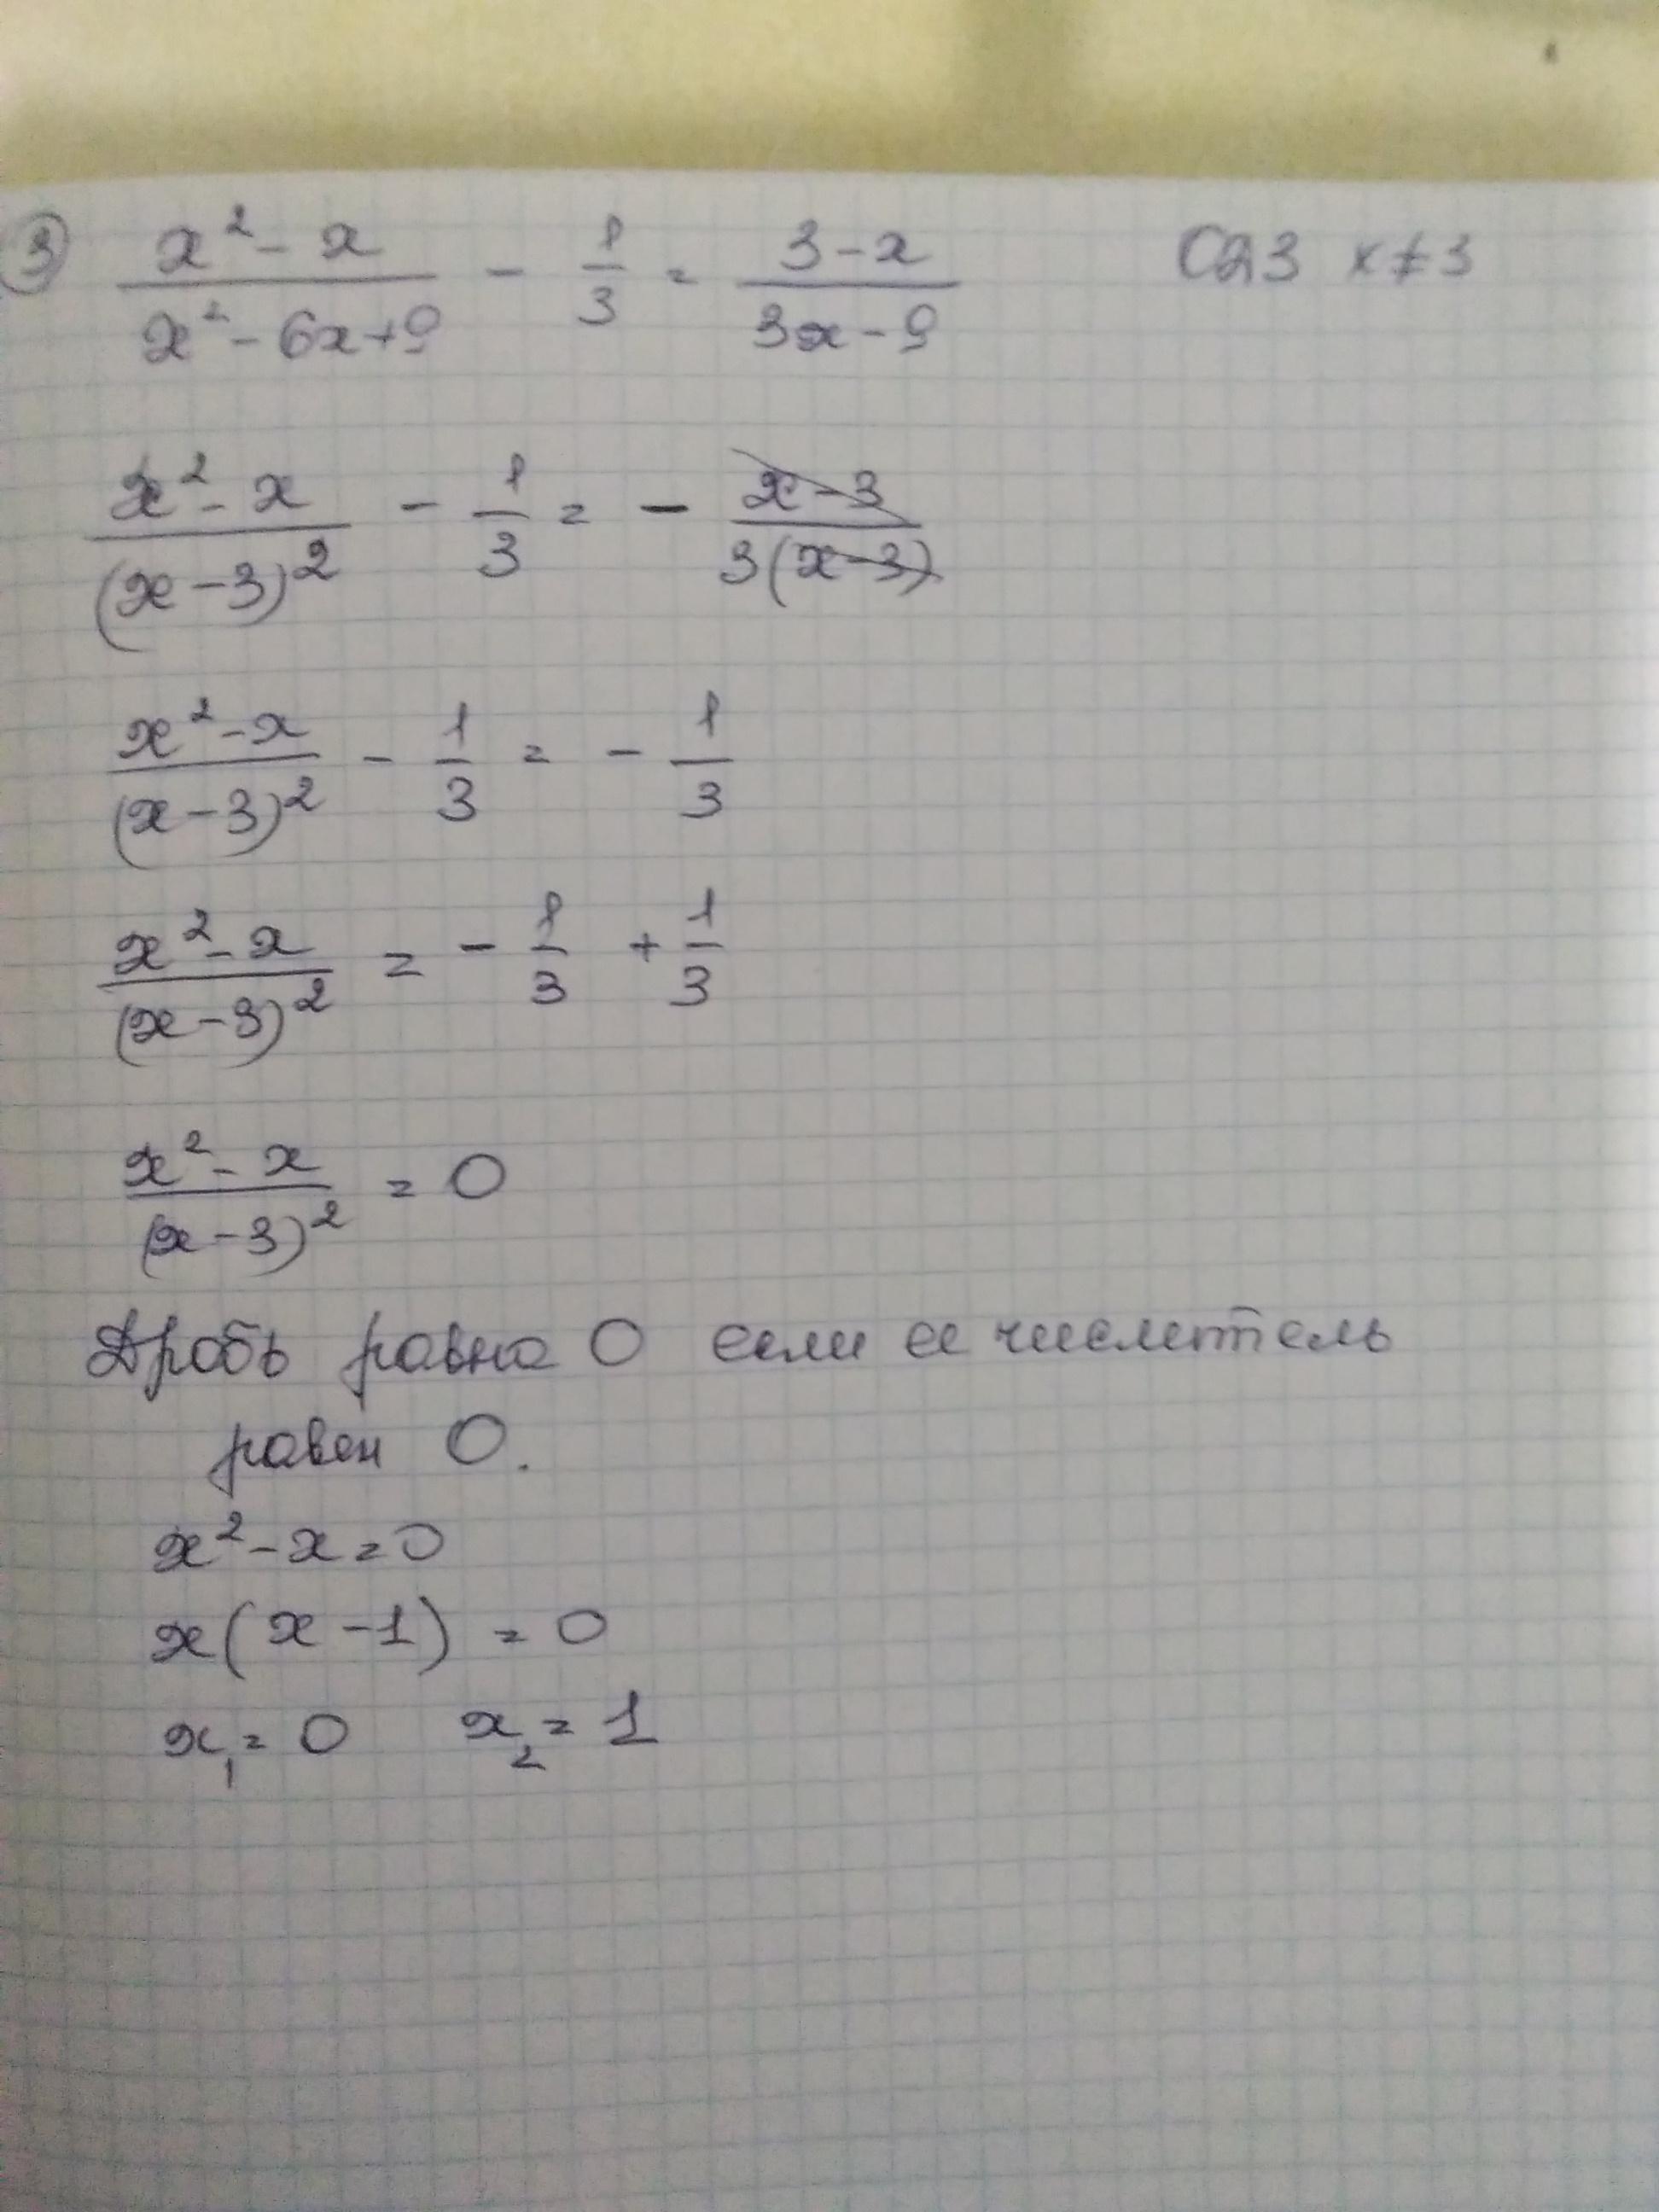 ③ (x² - x)/(x² - 6x + 9) - 1/3 = (3 - x)/(3x - 9) ОДЗ x ≠ 3
(x² - x)/(x - 3)² - 1/3 = - (x - 3)/(3(x - 3))
(x² - x)/(x - 3)² - 1/3 = - 1/3
(x² - x)/(x - 3)² = - 1/3 + 1/3
(x² - x)/(x - 3)² = 0
Дробь равна 0 если ее числитель
равен 0.
x² - x = 0
x(x - 1) = 0
x₁ = 0 x₂ = 1